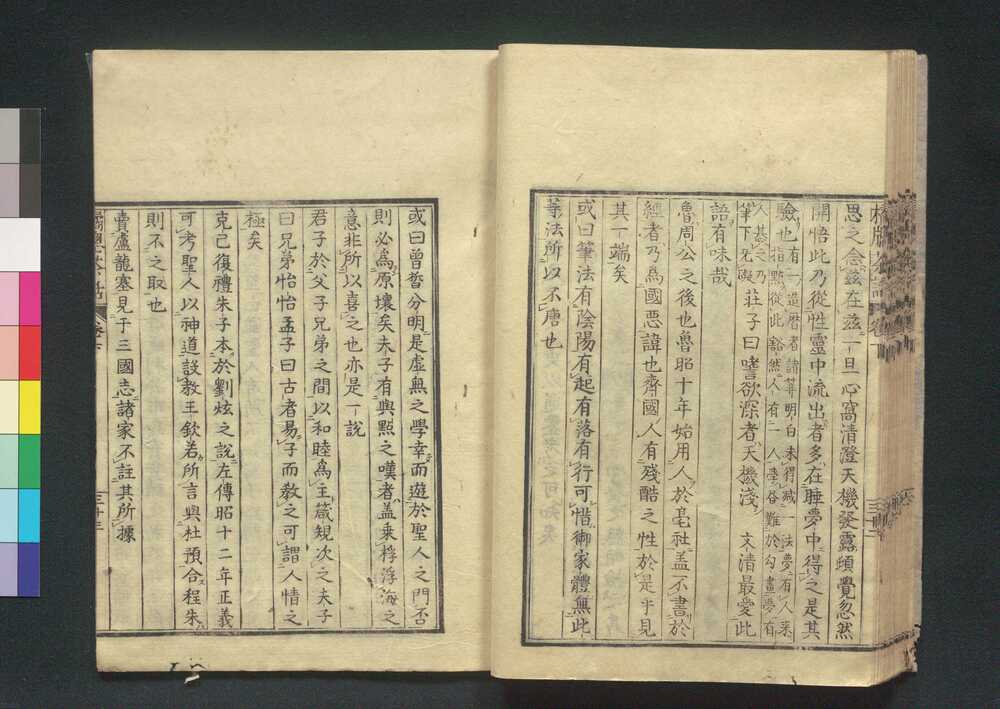 思之念茲在茲一旦心窩清澄天機發露頓覺忽然
開悟此乃從性靈中流出者多在睡夢中得之是其
驗也有一造曆者諸筭明白未得減一法夢有人来
指點從此豁然人有一人學谷難於勾畫夢有
人基之乃
筆下无礙莊子曰嗜欲深者天機淺文清最愛此
語有味哉
魯周公之後也魯昭十年始用人於亳社盖不書於
經者乃為國惡諱也齊國人有殘酷之性於是乎見
其一端矣
或曰筆法有陰陽有起有落有行可惜御家體無此
等法所以不唐也
或曰曾晳分明是虛無之學幸而遊於聖人之門否
則必為原壤矣夫子有與點之嘆者盖乗桴浮海之
意非所以喜之也亦是一說
君子於父子兄弟之間以和睦為主箴規次之夫子
曰兄弟怡怡孟子曰古者易子而教之可謂人情之
極矣
克己復禮朱子本於劉炫之說左傳昭十二年正義
可考聖人以神道設教王欽若所言與杜預合程朱
則不之取也
賣盧龍塞見于三國志諸家不註其所據
三十三